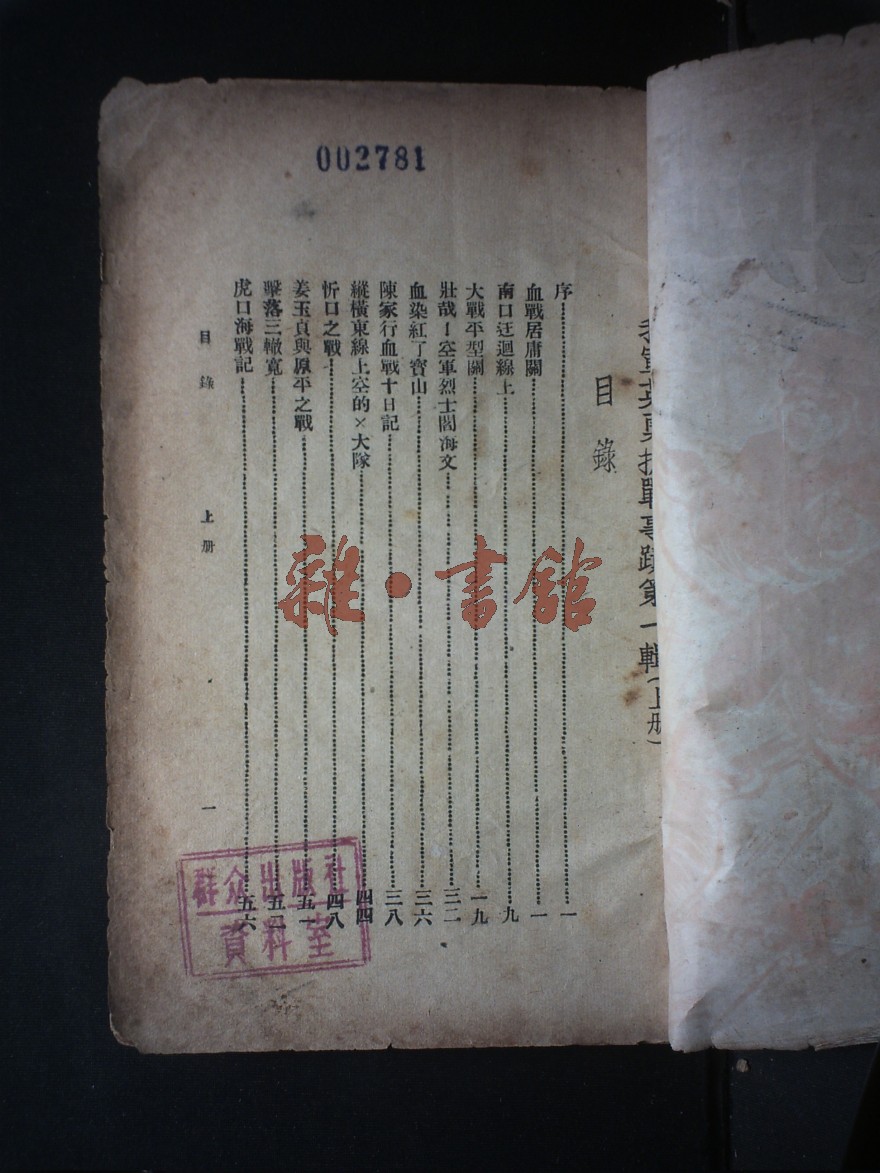 002781
我軍英勇抗戰事蹟第一輯(上册)
目錄
序一
血戰居庸關一
南口迂迴線上九
大戰平型關一九
壯哉!空軍烈士閻海文三二
血染紅了寶山三六
陳家行血戰十日記三八
縱橫東線上空的×大隊四四
忻口之戰四八
姜玉貞與原平之戰五一
擊落三轍寬五二
虎口海戰記五六
目錄 上册 一
群众出版社
資料室
雜·書館